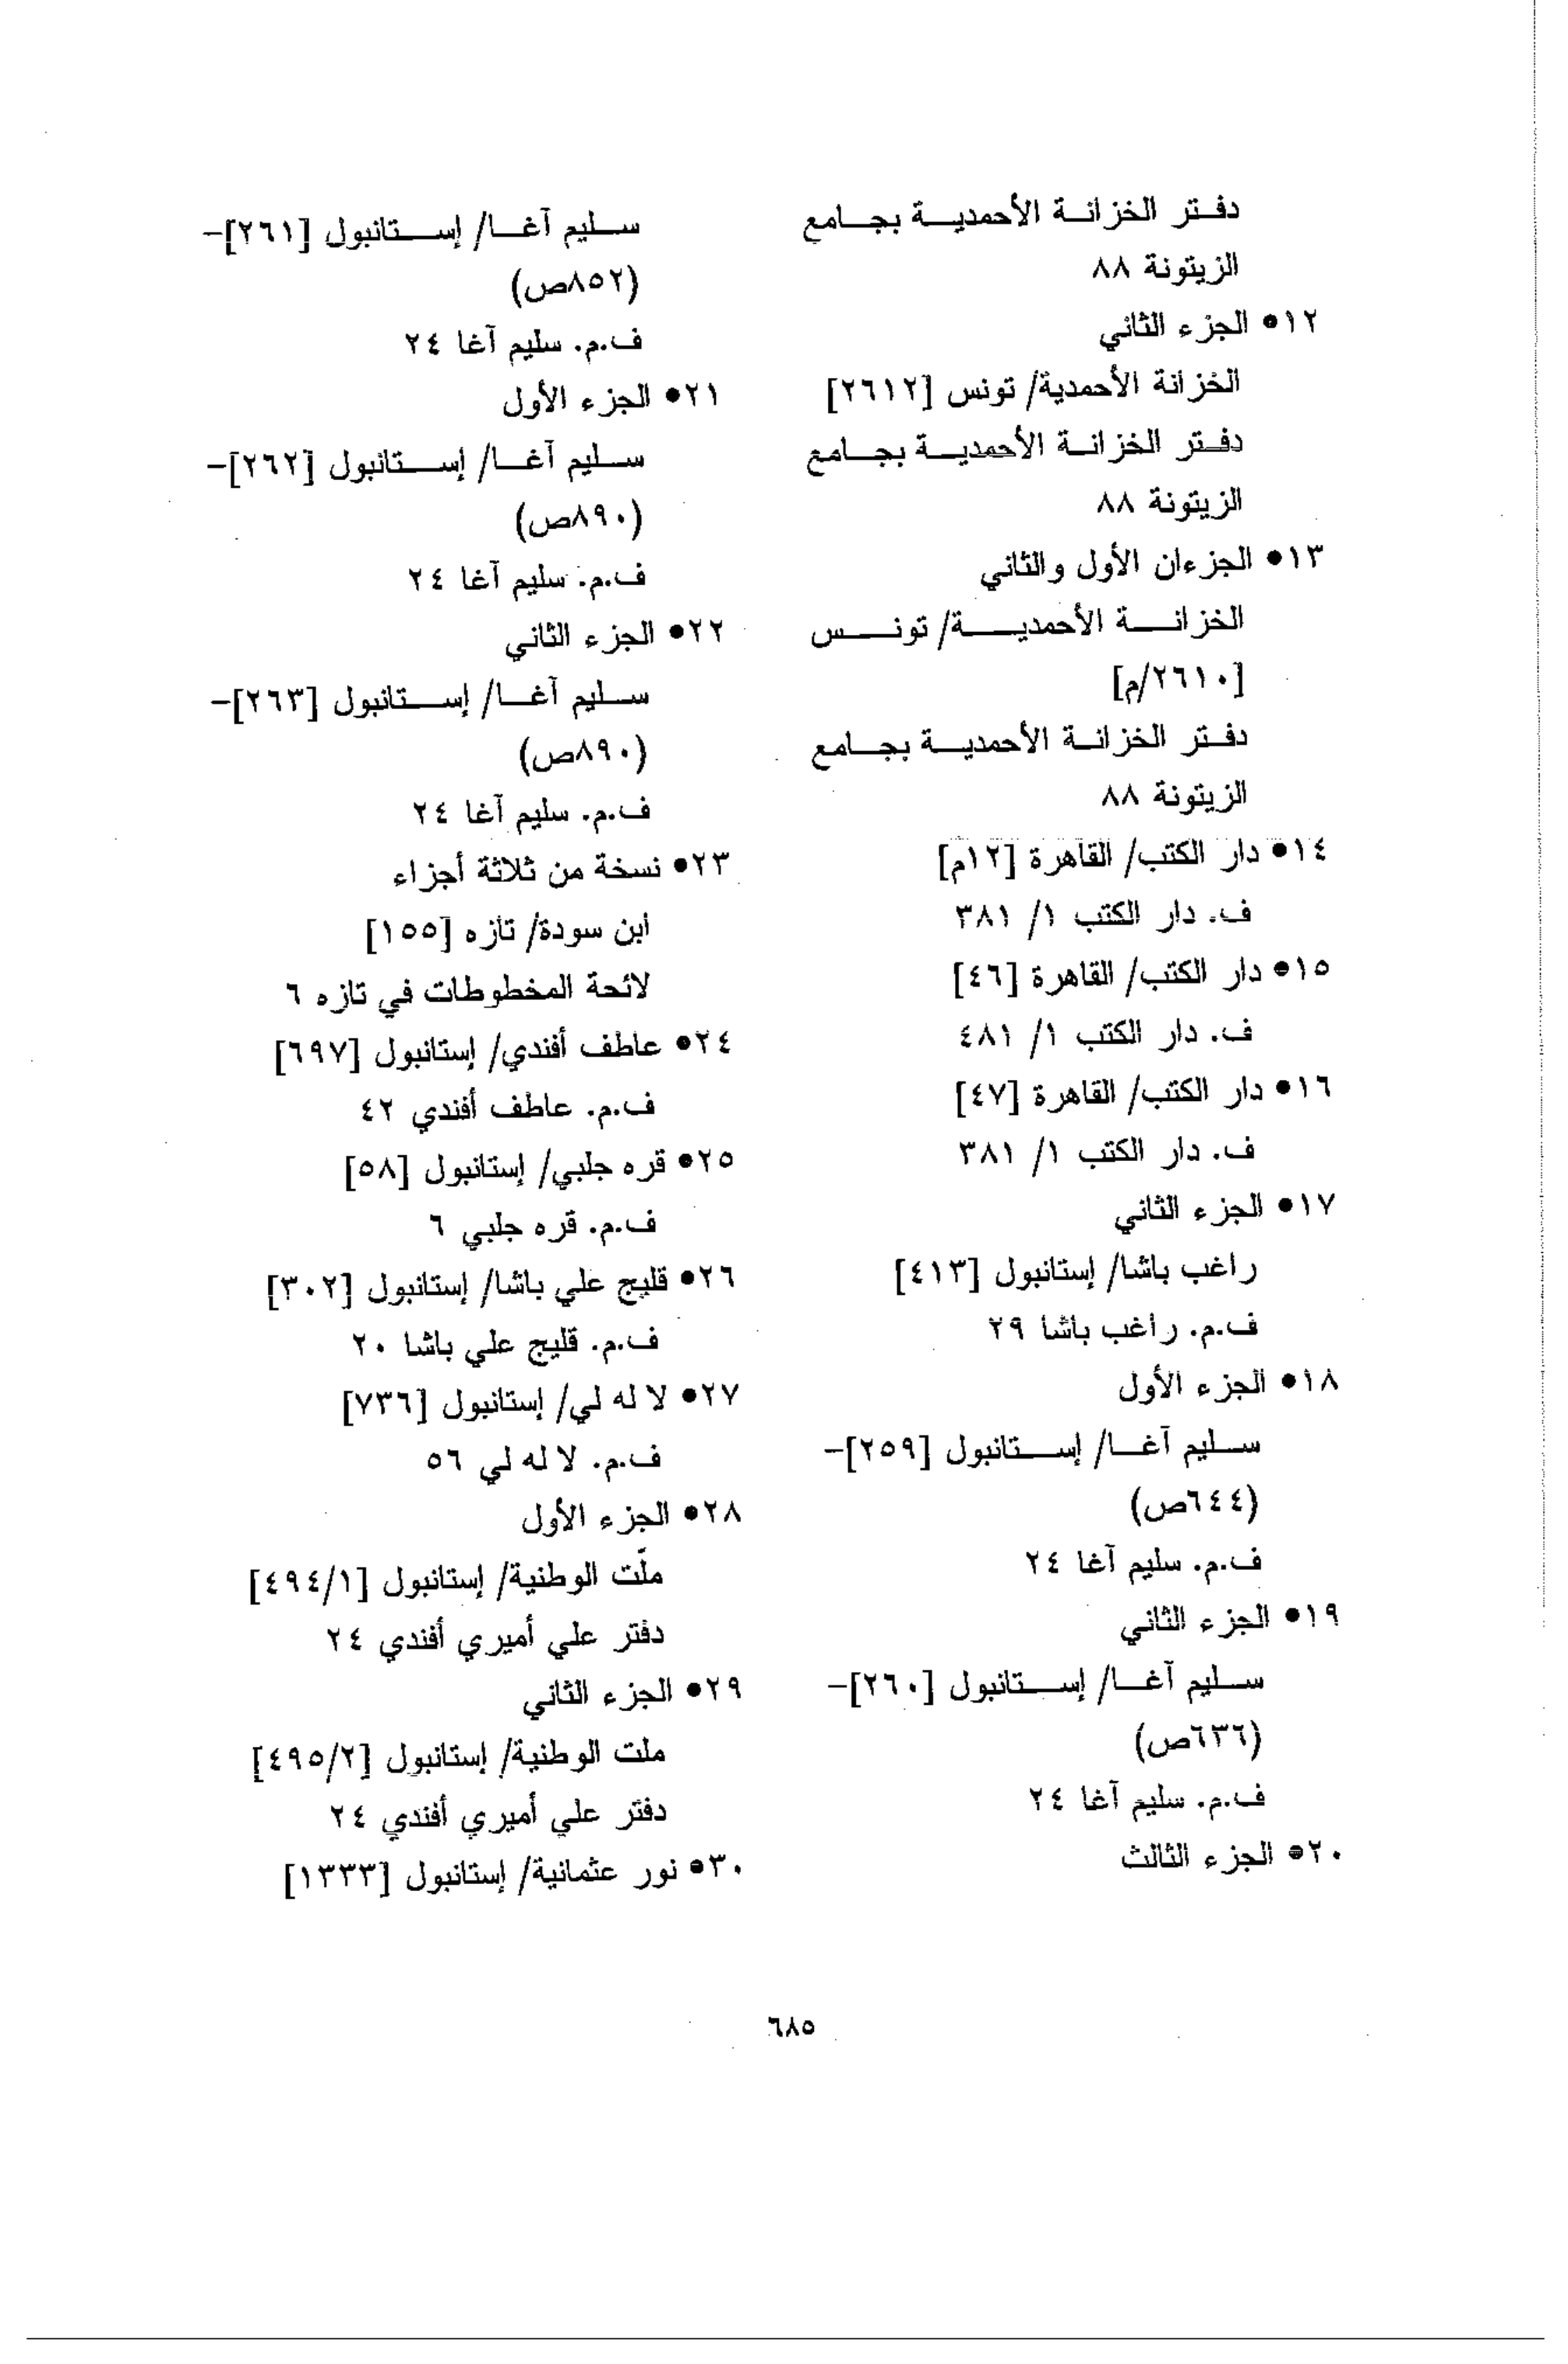 دفتر الخزانة الأحمدية بجامع
الزيتونة ٨٨
١٢• الجزء الثاني
الخزانة الأحمدية/ تونس [٢٦١٢]
دفتر الخزانة الأحمدية بجامع
الزيتونة ٨٨
١٣• الجزءان الأول والثاني
الخزانة الأحمدية/ تونس
[٢٦١٠/م]
دفتر الخزانة الأحمدية بجامع
الزيتونة ٨٨
١٤• دار الكتب/ القاهرة [١٢م]
ف. دار الكتب ١/ ٣٨١
١٥• دار الكتب/ القاهرة [٤٦]
ف. دار الكتب ١/ ٤٨١
١٦• دار الكتب/ القاهرة [٤٧]
ف. دار الكتب ١/ ٣٨١
١٧• الجزء الثاني
راغب باشا/ إستانبول [٤١٣]
ف.م. راغب باشا ٢٩
١٨• الجزء الأول
سليم آغا/ إستانبول [٢٥٩]-
(٦٤٤ص)
ف.م. سليم آغا ٢٤
١٩• الجزء الثاني
سليم آغا/ إستانبول [٢٦٠]-
(٦٣٦ص)
ف.م. سليم آغا ٢٤
٢٠• الجزء الثالث
سليم آغا/ إستانبول [٢٦١]-
(٨٥٢ص)
ف.م. سليم آغا ٢٤
٢١• الجزء الأول
سليم آغا/ إستانبول [٢٦٢]-
(٨٩٠ص)
ف.م. سليم آغا ٢٤
٢٢• الجزء الثاني
سليم آغا/ إستانبول [٢٦٣]-
(٨٩٠ص)
ف.م. سليم آغا ٢٤
٢٣• نسخة من ثلاثة أجزاء
ابن سودة/ تازه [١٥٥]
لائحة المخطوطات في تازه ٦
٢٤• عاطف أفندي/ إستانبول [٦٩٧]
ف.م. عاطف أفندي ٤٢
٢٥• قره جلبي/ إستانبول [٥٨]
ف.م. قره جلبي ٦
٢٦• قليج علي باشا/ إستانبول [٣٠٢]
ف.م. قليج علي باشا ٢٠
٢٧• لا له لي/ إستانبول [٧٣٦]
ف.م. لا له لي ٥٦
٢٨• الجزء الأول
ملّت الوطنية/ إستانبول [٤٩٤/١]
دفتر علي أميري أفندي ٢٤
٢٩• الجزء الثاني
ملت الوطنية/ إستانبول [٤٩٥/٢]
دفتر علي أميري أفندي ٢٤
٣٠• نور عثمانية/ إستانبول [١٣٣٣]
٦٨٥